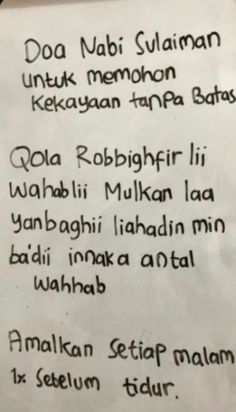 Doa Nabi Sulaiman
untuk memohon
kekayaan tanpa Batas
Qola Robbighfir lii
Wahablii Mulkan laa
yanbaghii liahadin min
ba'dii innaka antal
Wahhab
Amalkan Setiap malam
1x Sebelum tidur.